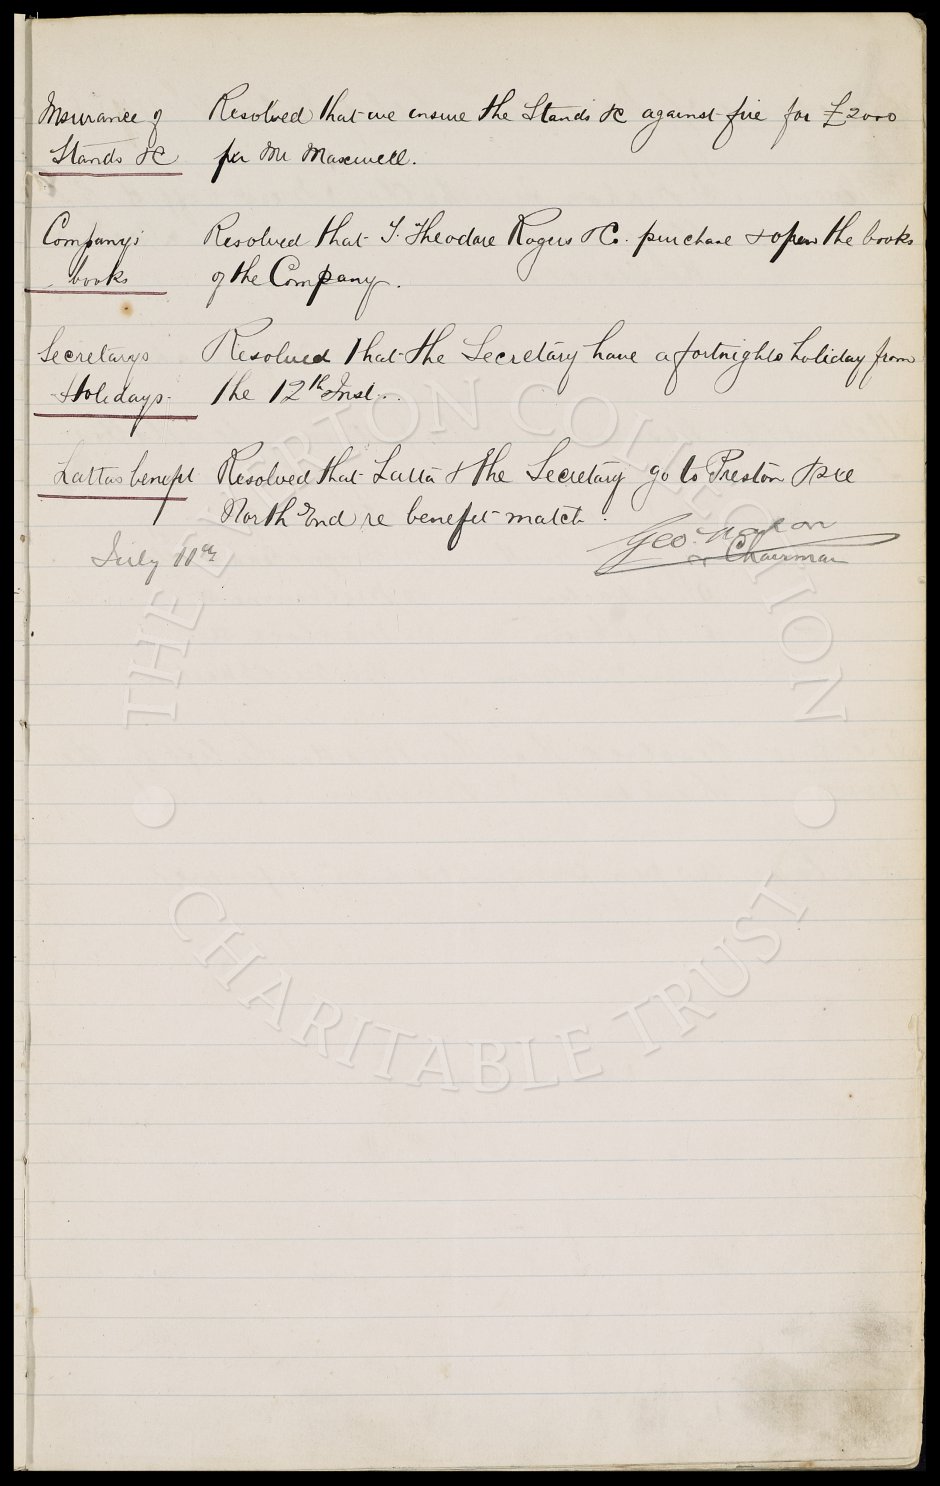 Insurance of Resolved that we insure the Stands &c against fire for £2000
Stands &c per Mr Maxwell.
Companys Resolved that T. Theodore Rogers & Co. purchase & open the books
books of the Company.
Secretarys Resolved that the Secretary have a fortnights holiday from
Holidays. the 12th Inst.
Lattas benefit Resolved that Latta & the Secretary go to Preston to see
North End re benefit match.
Geo. Mahon
July 11th Chairman
THE EVERTON COLLECTION
CHARITABLE TRUST